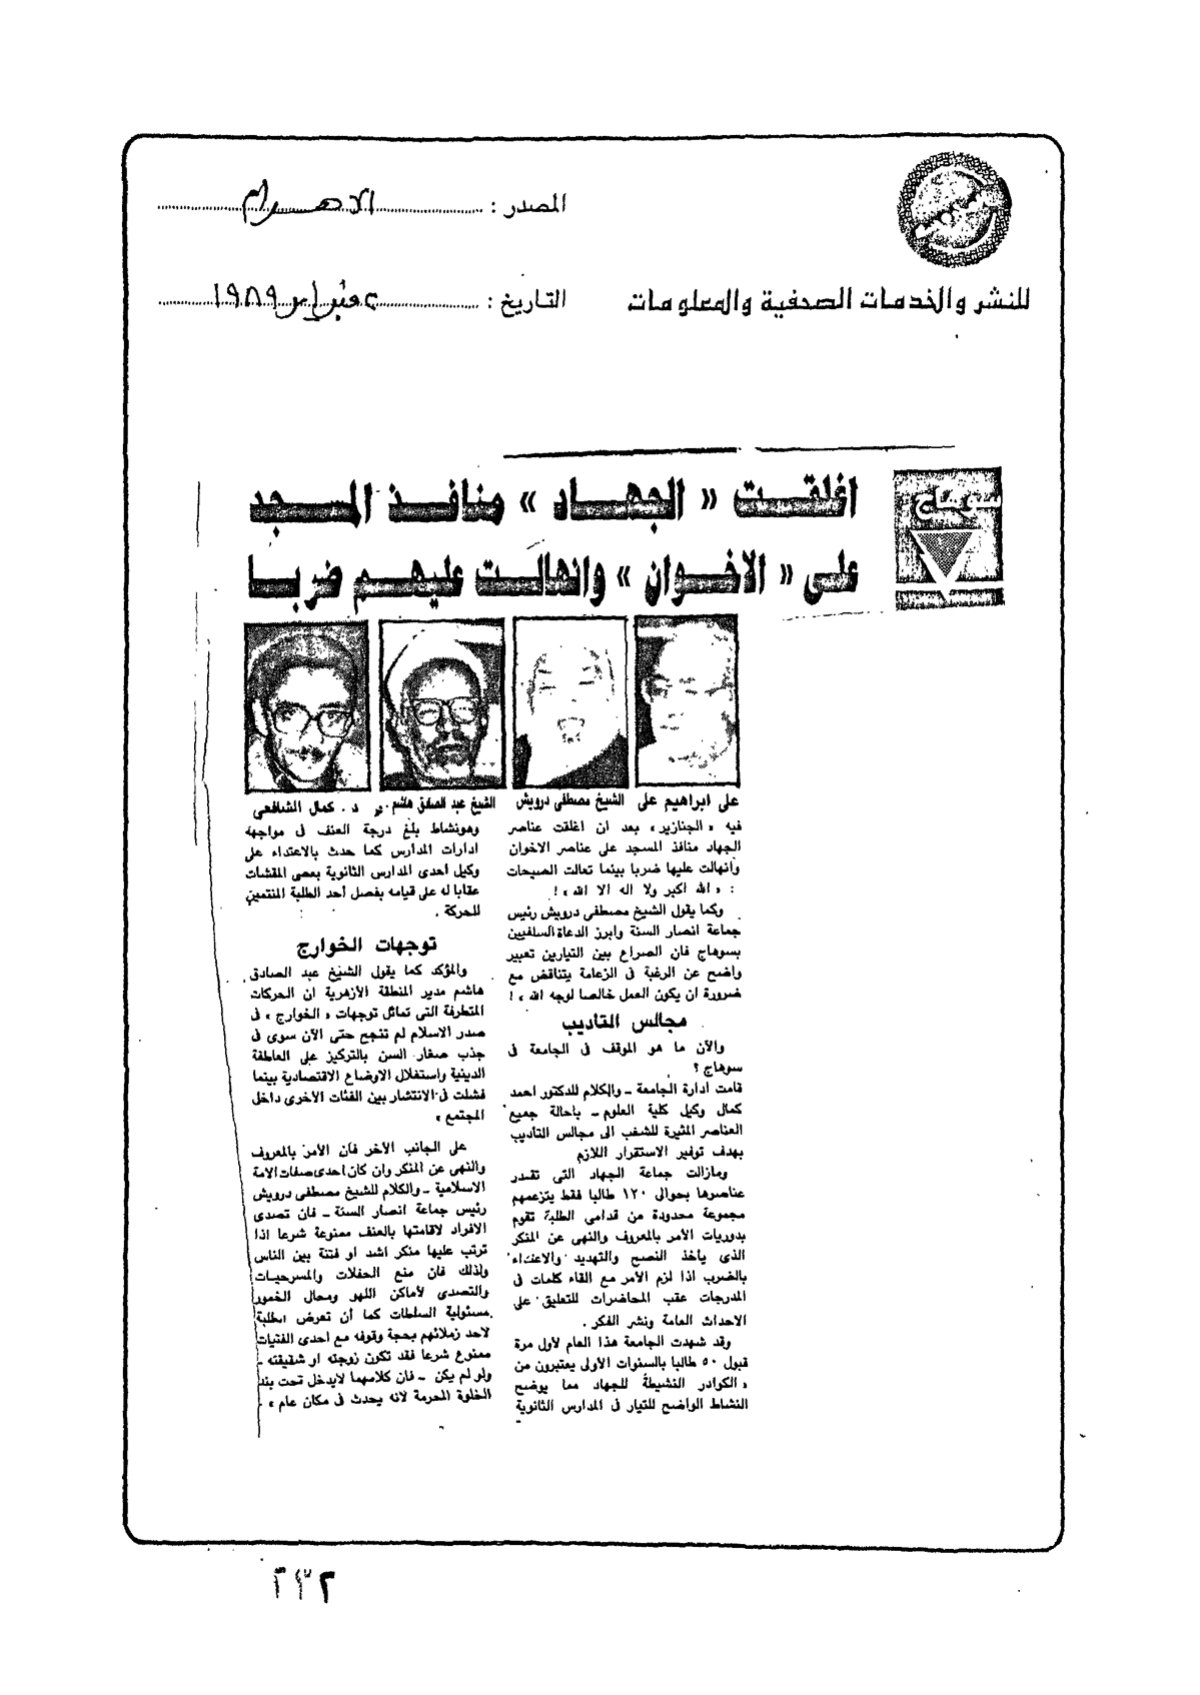 المصدر : الاهرام
التاريخ : ٢ فبراير ١٩٨٩
للنشر والخدمات الصحفية والمعلومات
سوهاج
اغلقت « الجهاد » منافذ المسجد
على « الاخوان » وانهالت عليهم ضربا
على ابراهيم على
الشيخ مصطفى درويش
الشيخ عبد الصادق هاشم
د . كمال الشافعى
فيه « الجنازير » بعد ان اغلقت عناصر
الجهاد منافذ المسجد على عناصر الاخوان
وانهالت عليها ضربا بينما تعالت الصيحات
: « الله اكبر ولا اله الا الله » !
وكما يقول الشيخ مصطفى درويش رئيس
جماعة انصار السنة وابرز الدعاة السلفيين
بسوهاج فان الصراع بين التيارين تعبير
واضح عن الرغبة فى الزعامة يتناقض مع
ضرورة ان يكون العمل خالصا لوجه الله » !
مجالس التاديب
والآن ما هو الموقف فى الجامعة فى
سوهاج ؟
قامت ادارة الجامعة ــ والكلام للدكتور احمد
كمال وكيل كلية العلوم ــ باحالة جميع
العناصر المثيرة للشغب الى مجالس التأديب
بهدف توفير الاستقرار اللازم
ومازالت جماعة الجهاد التى تقدر
عناصرها بحوالى ١٢٠ طالبا فقط يتزعمهم
مجموعة محدودة من قدامى الطلبة تقوم
بدوريات الأمر بالمعروف والنهى عن المنكر
الذى ياخذ النصح والتهديد والاعتداء
بالضرب اذا لزم الأمر مع القاء كلمات فى
المدرجات عقب المحاضرات للتعليق على
الاحداث العامة ونشر الفكر .
وقد شهدت الجامعة هذا العام لأول مرة
قبول ٥٠ طالبا بالسنوات الأولى يعتبرون من
« الكوادر النشيطة للجهاد مما يوضح
النشاط الواضح للتيار فى المدارس الثانوية
وهونشاط بلغ درجة العنف فى مواجهة
ادارات المدارس كما حدث بالاعتداء على
وكيل احدى المدارس الثانوية بعصى المقشات
عقابا له على قيامه بفصل أحد الطلبة المنتمين
للحركة .
توجهات الخوارج
والمؤكد كما يقول الشيخ عبد الصادق
هاشم مدير المنطقة الأزهرية ان الحركات
المتطرفة التى تماثل توجهات « الخوارج » فى
صدر الاسلام لم تنجح حتى الآن سوى فى
جذب صغار السن بالتركيز على العاطفة
الدينية واستغلال الاوضاع الاقتصادية بينما
فشلت فى الانتشار بين الفئات الأخرى داخل
المجتمع »
على الجانب الآخر فان الأمر بالمعروف
والنهى عن المنكر وان كان احدى صفات الامة
الاسلامية ــ والكلام للشيخ مصطفى درويش
رئيس جماعة انصار السنة ــ فان تصدى
الافراد لاقامتها بالعنف ممنوعة شرعا اذا
ترتب عليها منكر اشد او فتنة بين الناس
ولذلك فان منع الحفلات والمسرحيات
والتصدى لأماكن اللهو ومحال الخمور
مسئولية السلطات كما أن تعرض الطلبة
لاحد زملائهم بحجة وقوفه مع احدى الفتيات
ممنوع شرعا فقد تكون زوجته او شقيقته ــ
ولو لم يكن ــ فان كلامهما لايدخل تحت بند
الخلوة المحرمة لانه يحدث فى مكان عام » .